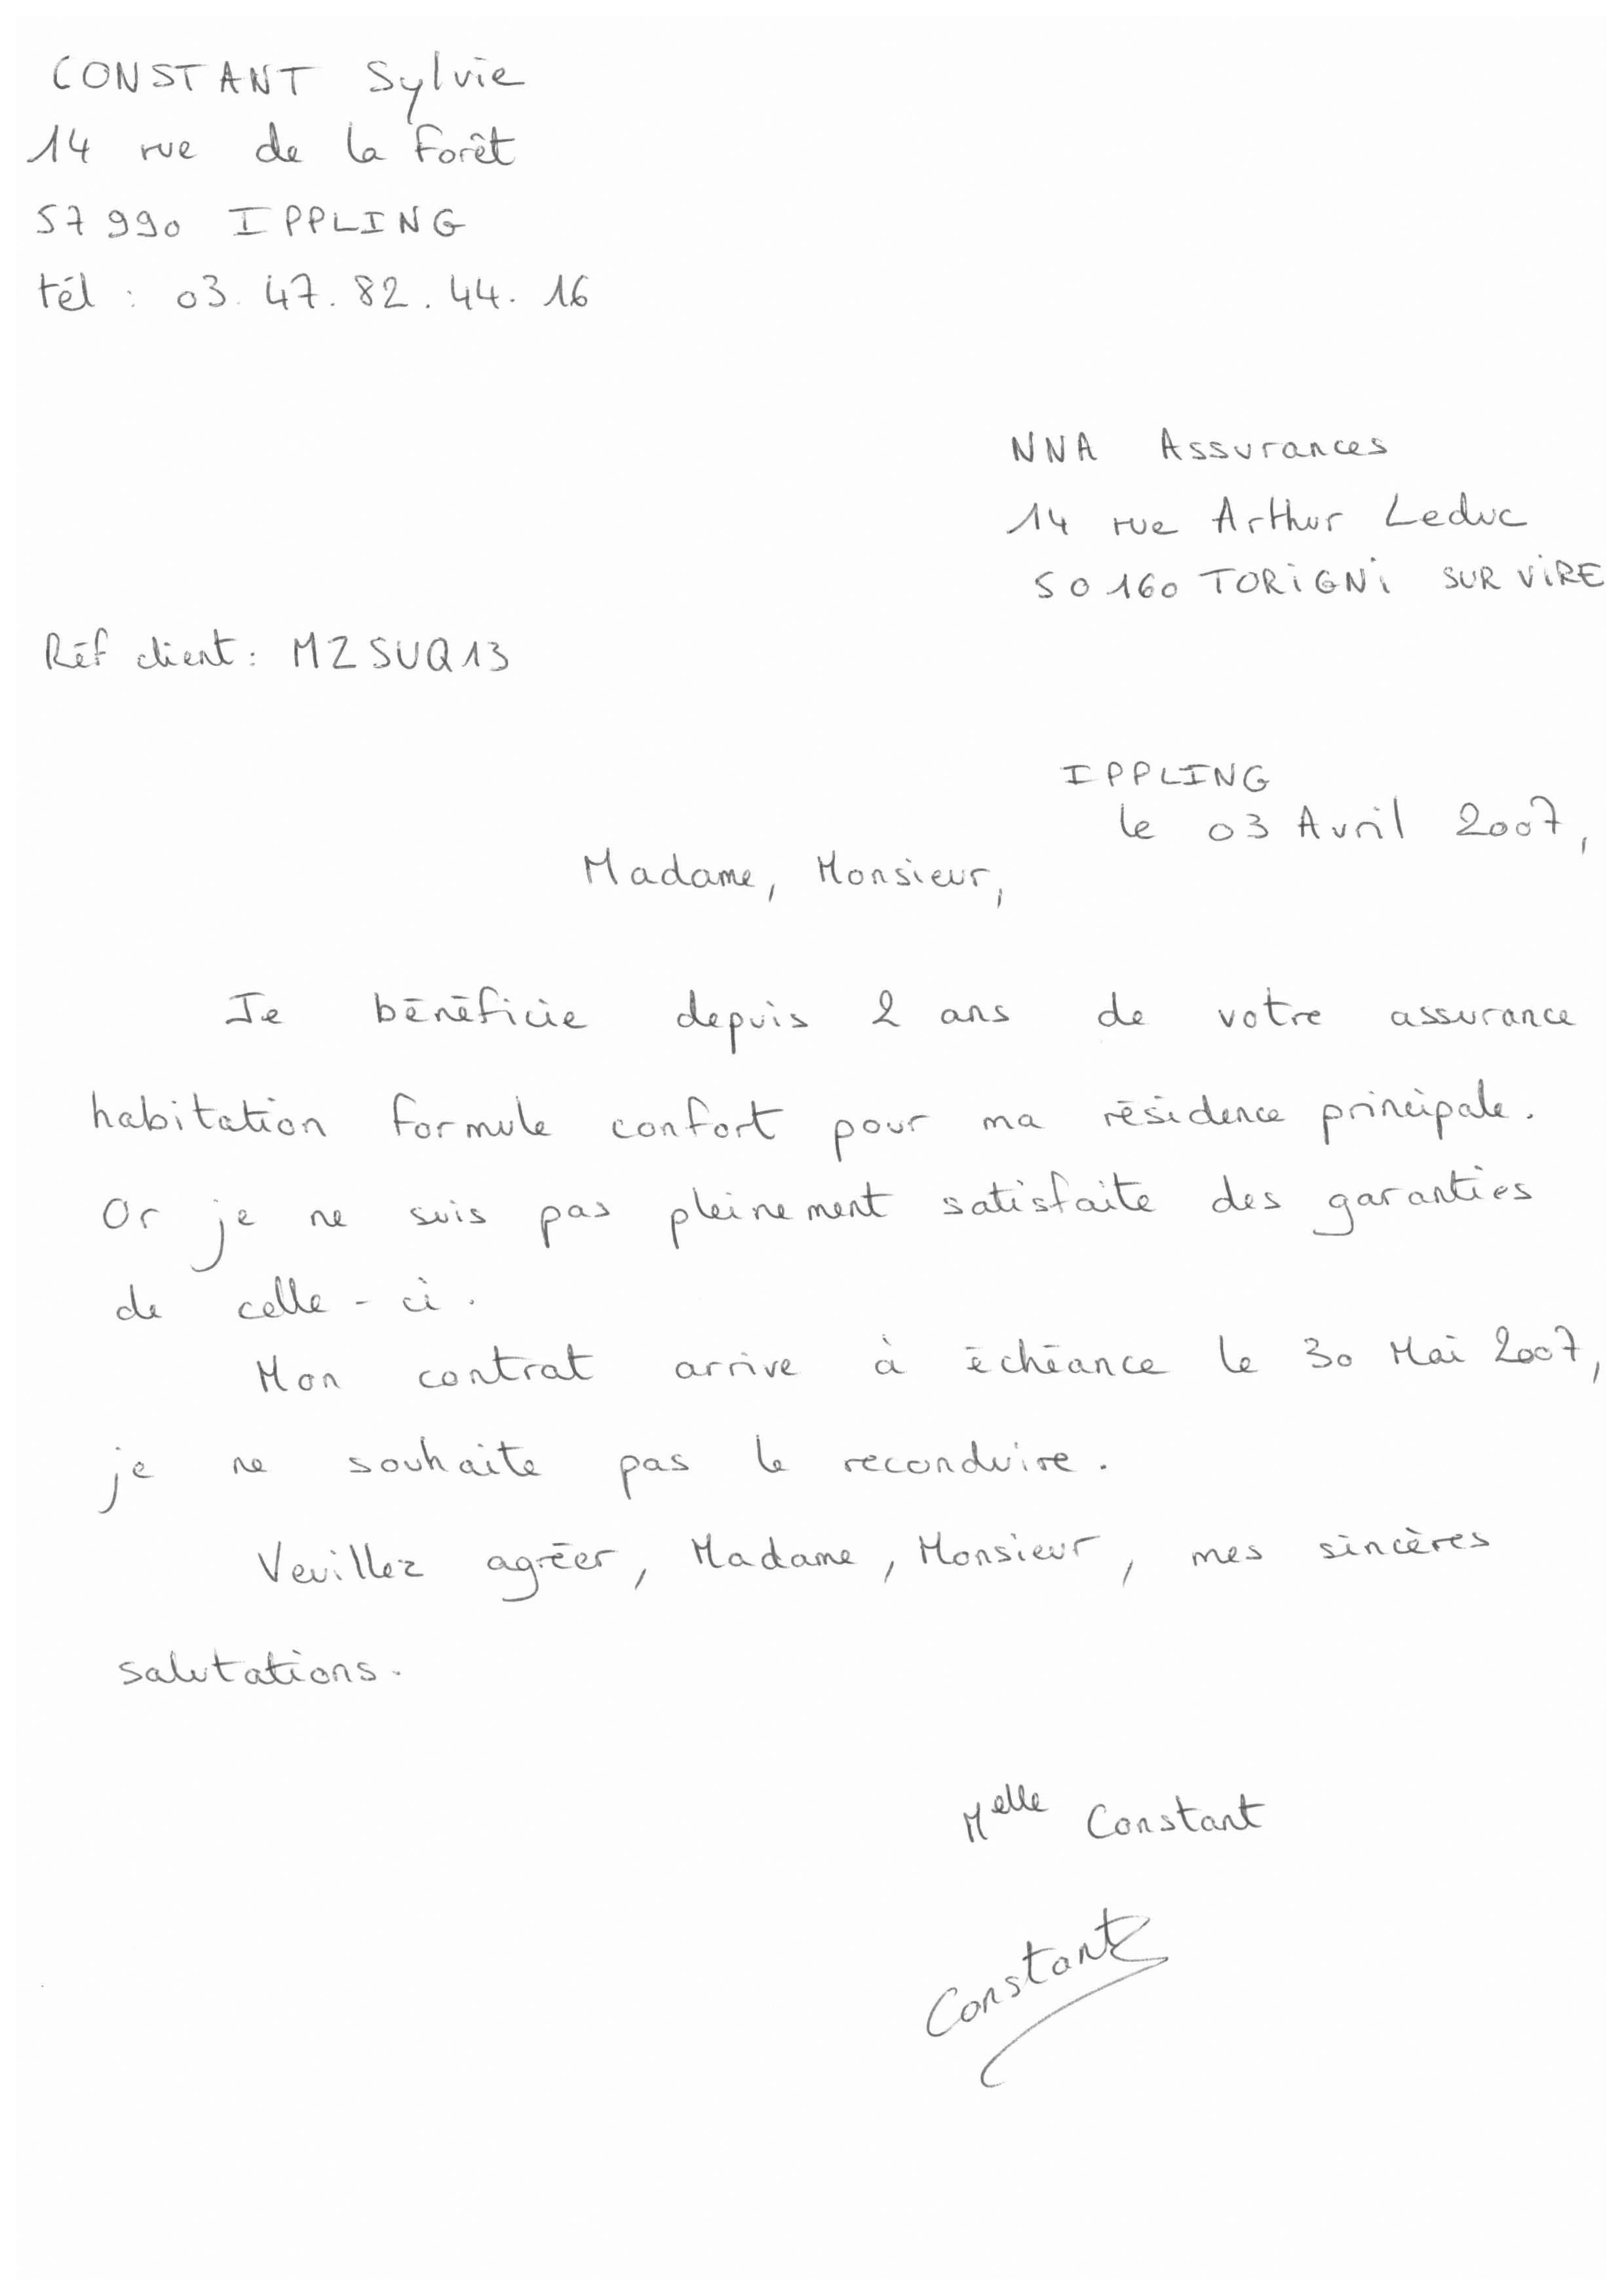 CONSTANT Sylvie
14 rue de la Forêt
57990 IPPLING
tél : 03.47.82.44.16
NNA Assurances
14 rue Arthur Leduc
50160 TORiGNi SUR ViRE
Réf client : MZSUQ13
IPPLING
le 03 Avril 2007,
Madame, Monsieur,
Je bénéficie depuis 2 ans de votre assurance
habitation formule confort pour ma résidence principale.
Or je ne suis pas pleinement satisfaite des garanties
de celle-ci.
Mon contrat arrive à échéance le 30 Mai 2007,
je ne souhaite pas le reconduire.
Veuillez agréer, Madame, Monsieur, mes sincères
salutations.
Melle Constant
Constant